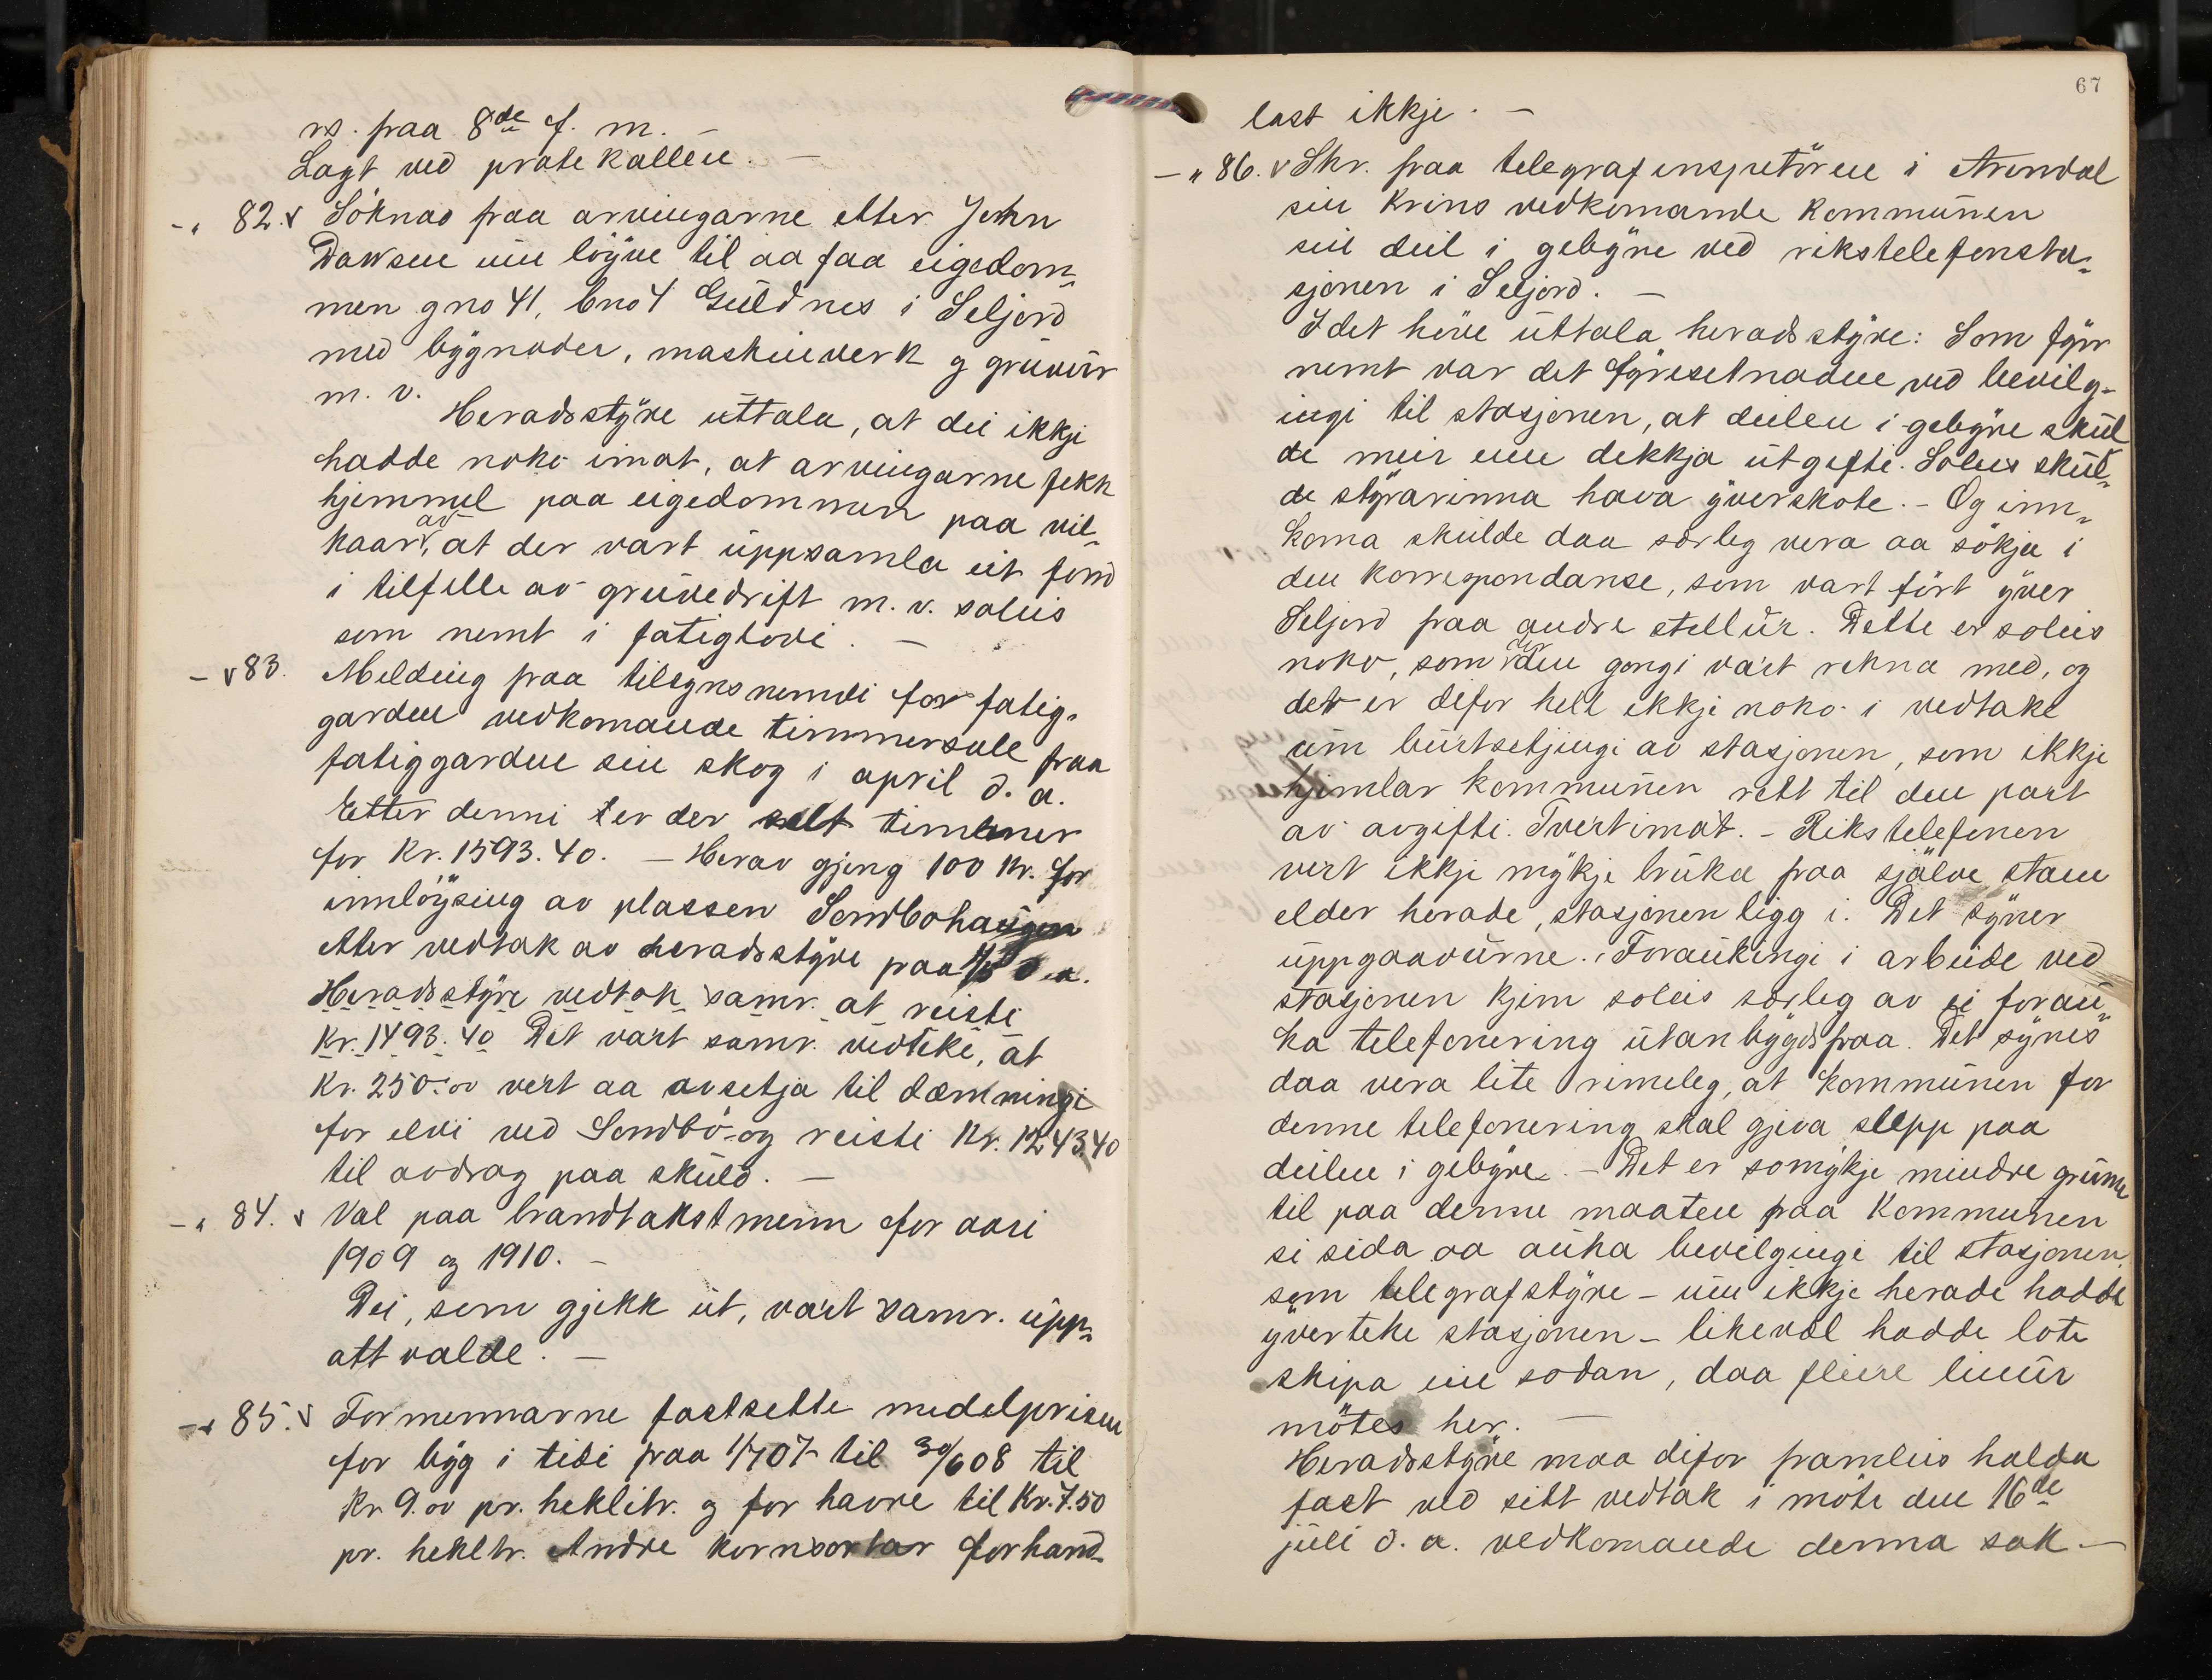 rs. fraa 8de f. m. –
Lagt ved protokollen. –
-„ 82. v Söknad fraa arvingarne etter John
Dawsen um löyve til aa faa eigedom-
men gno 41, bno 4 Guldnes i Seljord
med bygnader, maskinverk og gruvur
m. v.
Heradsstyre uttala, at dei ikkji
hadde noko imot, at arvingarne fekk
hjemmel paa eigedommen paa vil-
kaar av, at der vart uppsamla eit fond
i tilfelle av gruvedrift m. v. soleis
som nemt i fatiglovi. –
– v 83. Melding fraa tilsynsnemdi for fatig-
garden vedkomande timmersale fraa
fatiggarden sin skog i april d. a.
Etter denni er der selt timmer
for Kr. 1593.40. – Herav gjeng 100 Kr. for
innlöysing av plassen Sondbohaugen
etter vedtak av heradsstyre paa d. a.
Heradsstyre vedtok samr. at reisti
Kr. 1493.40 Det vart samr. vedteke, at
Kr. 250.00 vert aa avsetja til dæmningi
for elvi ved Sondbö og reisti Kr. 1243.40
til avdrag paa skuld. –
-„ 84. v Val paa brandtakstmenn for aari
1909 og 1910. –
Dei, som gjekk ut, vart samr. upp-
att valde. –
-„ 85. v Formennarne fastsette medelprisen
for byg i tidi fraa 1/7 07 til 30/6 08 til
Kr 9.00 pr. heklitr. og for havre til Kr. 7.50
pr. hekltr. Andre kornsortar forhand-
67
last ikkje. –
-„ 86. v Skr. fraa telegrafinspetören i Arendal
sin Krins vedkomande Kommunen
sin deil i gebyre ved rikstelefonsta-
sjonen i Seljord. –
I det höve uttala heradsstyre: Som fyrr
nemt var det fyresetnaden ved bevilg-
ingi til stasjonen, at deilen i gebyre skul
de meir enn dekkja utgifti. Soleis skul-
de styrarinna hava yverskote. – Og inn-
koma skulde daa særleg vera aa sökja i
den Korrespondanse, som vart fört yver
Seljord fraa andre stellur. Dette er soleis
noko, som der den gongi vart rekna med, og
det er difor hell ikkji noko i vedtake
um burtsetjingi av stasjonen, som ikkje
hjimlar kommunen rett til den part
av avgifti. Tvertimot. – Rikstelefonen
vert ikkji mykje bruka fraa sjölve staen
elder herade, stasjonen ligg i. Det syner
uppgaavurne. Foraukingi i arbeide ved
stasjonen kjim soleis særleg av ei forau-
ka telefonering utanbygdsfraa. Det synes
daa vera lite rimeleg, at kommunen for
denne telefonering skal gjeva slepp paa
deilen i gebyre. – Det er somykje mindre grunn
til paa denne maaten fraa Kommunen
si sida aa auka bevilgingi til stasjonen,
som telegrafstyre – um ikkje herade hadde
yverteke stasjonen – likevæl hadde lote
skipa ein sodan, daa fleire linur
mötes her. –
Heradsstyre maa difor framleis halda
fast ved sitt vedtak i möte den 16de
juli d. a. vedkomande denna sak. –